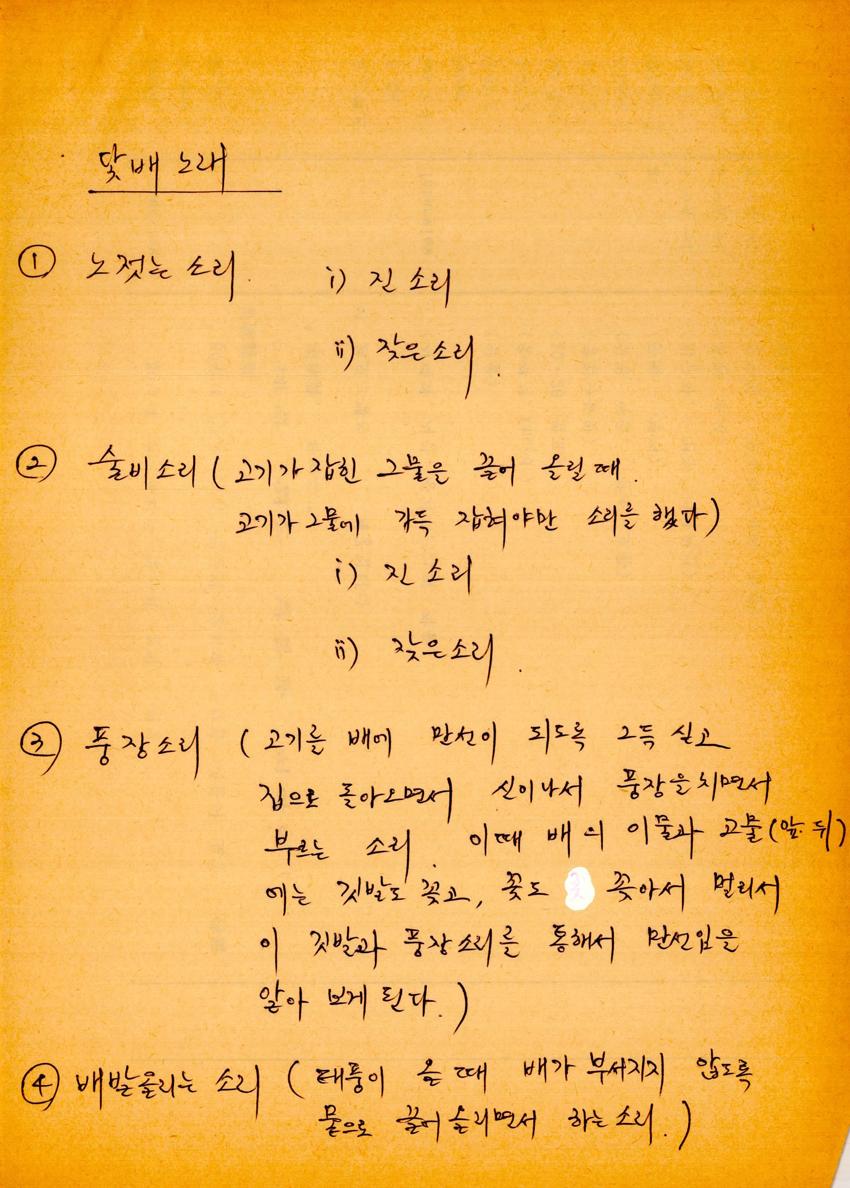 닻배 노래
① 노젓는 소리 i) 진소리
ii) 잦은소리
② 술비소리 ( 고기가 잡힌 그물을 끌어 올릴 때.
고기가 그물에 가득 잡혀야만 소리를 했다)
i) 진소리
ii) 잦은소리.
③ 풍장소리 ( 고기를 배에 만선이 되도록 그득 싣고
집으로 돌아오면서 신이나서 풍장을 치면서
부르는 소리. 이때 배의 이물과 고물(앞. 뒤)
에는 깃발도 꽂고, 꽃도 꽂아서 멀리서
이 깃발과 풍장소리를 통해서 만선임을
알아 보게 된다.)
④ 배발올리는 소리 ( 태풍이 올 때 배가 부서지지 않도록
뭍으로 끌어 올리면서 하는소리.)